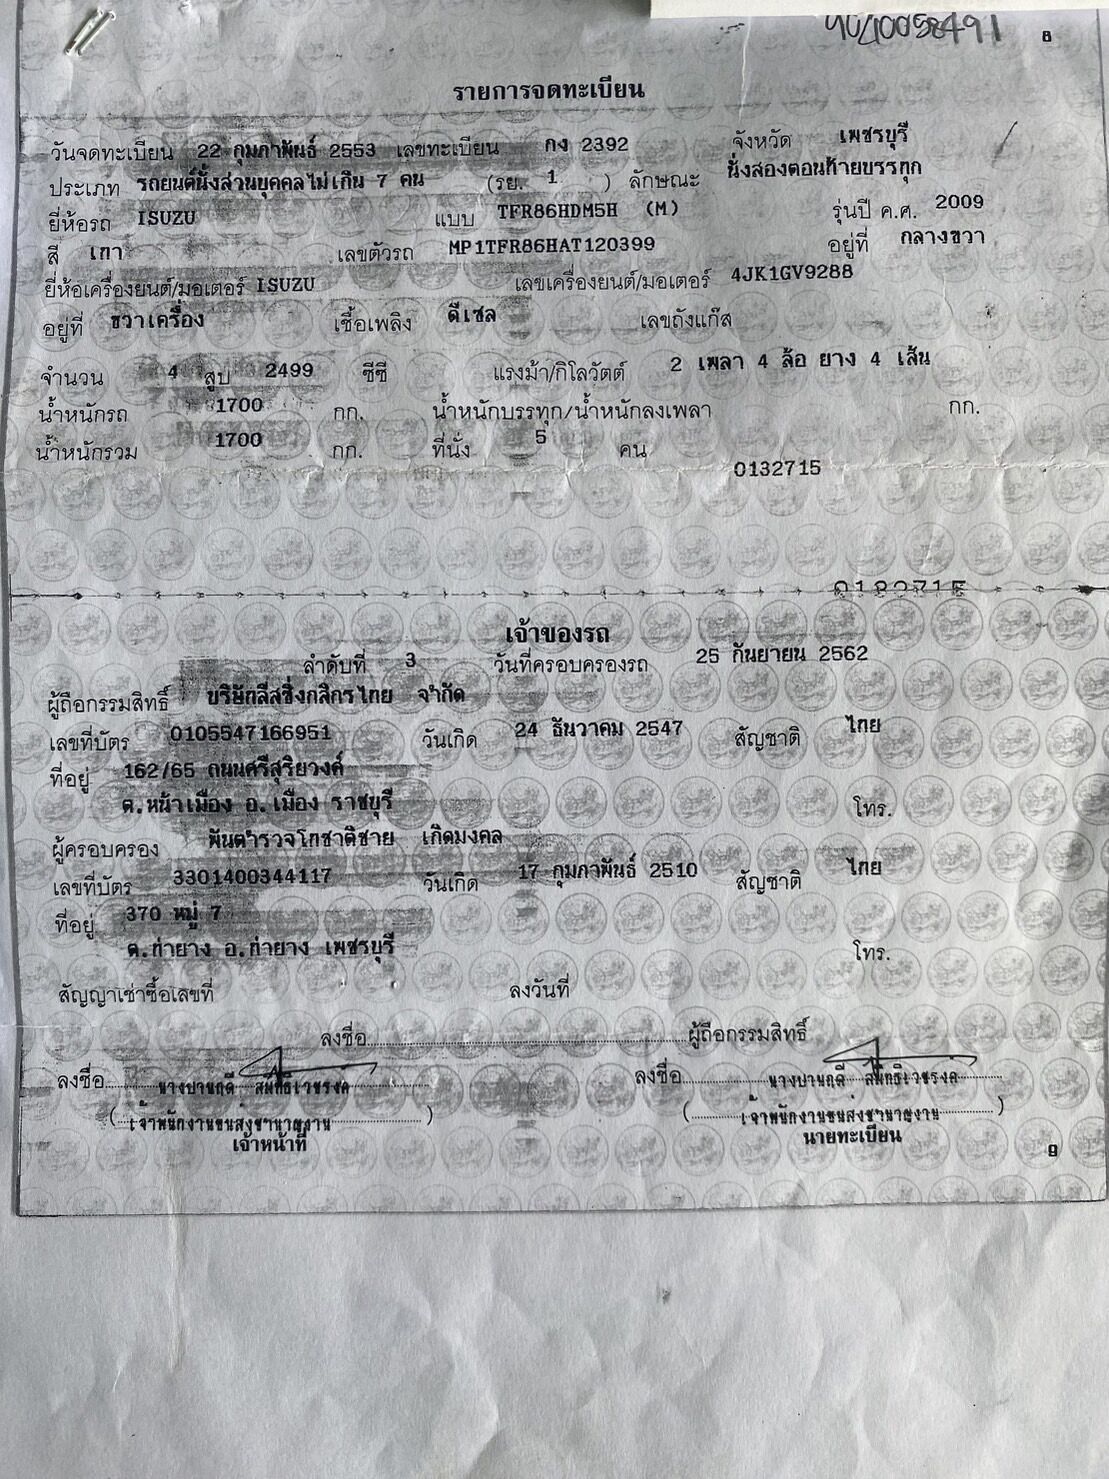 8
รายการจดทะเบียน
วันจดทะเบียน 22 กุมภาพันธ์ 2553 เลขทะเบียน กง 2392 จังหวัด เพชรบุรี
ประเภท รถยนต์นั่งส่วนบุคคลไม่เกิน 7 คน (รย. 1 ) ลักษณะ นั่งสองตอนท้ายบรรทุก
ยี่ห้อรถ ISUZU แบบ TFR86HDM5H (M) รุ่นปี ค.ศ. 2009
สี เทา เลขตัวรถ MP1TFR86HAT120399 อยู่ที่ กลางขวา
ยี่ห้อเครื่องยนต์/มอเตอร์ ISUZU เลขเครื่องยนต์/มอเตอร์ 4JK1GV9288
อยู่ที่ ขวาเครื่อง เชื้อเพลิง ดีเซล เลขถังแก๊ส
จำนวน 4 สูบ 2499 ซีซี แรงม้า/กิโลวัตต์ 2 เพลา 4 ล้อ ยาง 4 เส้น
น้ำหนักรถ 1700 กก. น้ำหนักบรรทุก/น้ำหนักลงเพลา กก.
น้ำหนักรวม 1700 กก. ที่นั่ง 5 คน
0132715
เจ้าของรถ
ลำดับที่ 3 วันที่ครอบครองรถ 25 กันยายน 2562
ผู้ถือกรรมสิทธิ์ บริษัทลีสซิ่งกสิกรไทย จำกัด
เลขที่บัตร 0105547166951 วันเกิด 24 ธันวาคม 2547 สัญชาติ ไทย
ที่อยู่ 162/65 ถนนศรีสุริยวงค์
ต.หน้าเมือง อ.เมือง ราชบุรี โทร.
ผู้ครอบครอง พันตำรวจโทชาติชาย เกิดมงคล
เลขที่บัตร 3301400344117 วันเกิด 17 กุมภาพันธ์ 2510 สัญชาติ ไทย
ที่อยู่ 370 หมู่ 7
ต.ท่ายาง อ.ท่ายาง เพชรบุรี โทร.
สัญญาเช่าซื้อเลขที่ ลงวันที่
ลงชื่อ ผู้ถือกรรมสิทธิ์
ลงชื่อ ลงชื่อ
(เจ้าพนักงานขนส่งชำนาญงาน) (เจ้าพนักงานขนส่งชำนาญงาน)
เจ้าหน้าที่ นายทะเบียน
9